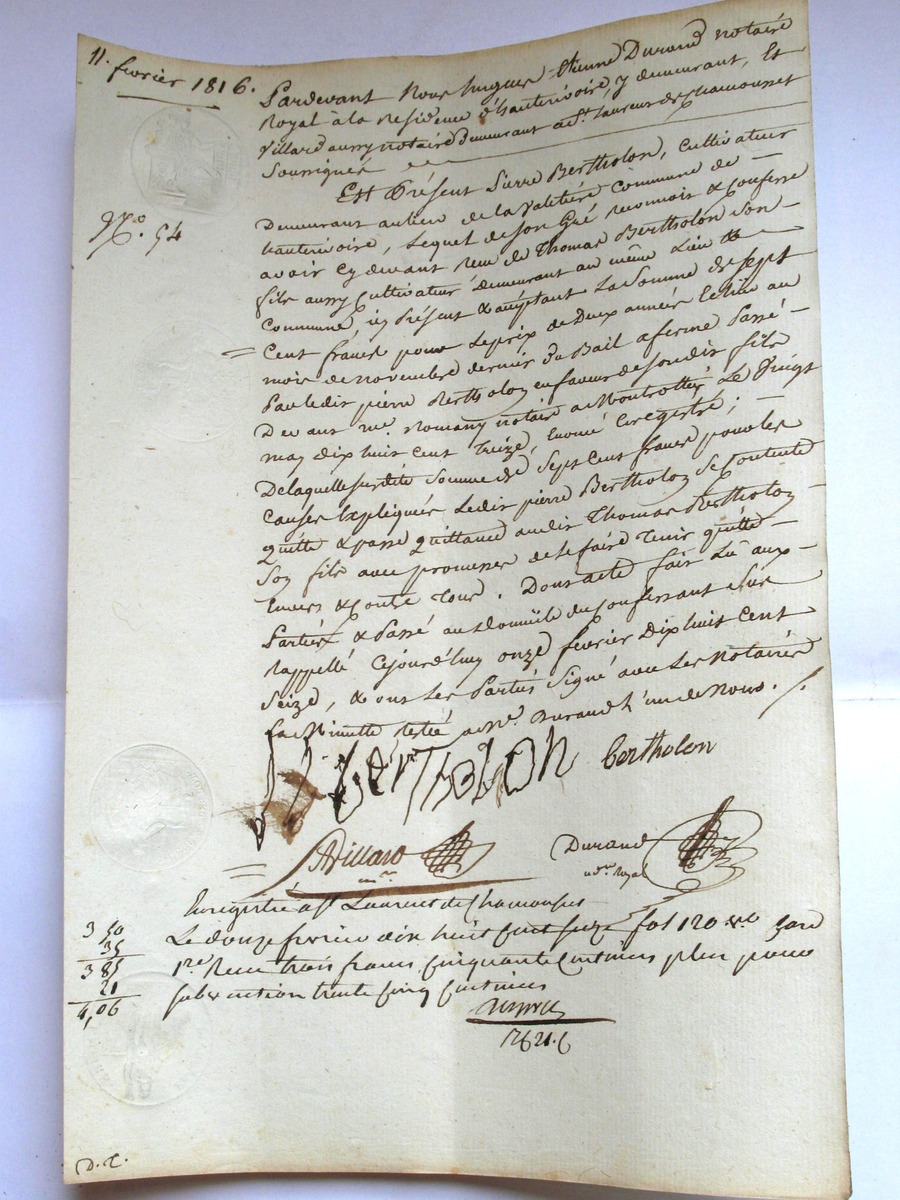 11. fevrier 1816.
Pardevant Nous hugues Etienne Durand notaire
Royal à la residence d'hauterivoire, y demeurant, Et
Villard aussy notaire demeurant a St. laurens de chamousset
Soussignés
Est Présent Pierre Bertholon, cultivateur
N.o 54
Demeurant au lieu de la Valetiére Commune de
hauterivoire, Lequel de son Gré reconnoit & confesse
avoir cy devant reçu de Thomas Bertholon son
fils aussy cultivateur demeurant au même Lieu &
Commune, icy Présent & acceptant La Somme de sept
Cent francs pour Le prix de Deux années Echûe au
mois de novembre dernier du Bail a ferme Passé
Par ledit pierre Bertholon en faveur de son dit fils
Devant me. Romany notaire a Montrottier Le Vingt
may dix huit cent treize, enregistré;
De laquelle susdite Somme de Sept Cent francs pour les
causes Expliquées Ledit pierre Bertholon Se Contente
quitte & passe quittance audit Thomas Bertholon
Son fils avec promesse de le faire tenir quitte
Envers & contre tous. Dont acte fait Lû aux
Parties & Passé au domicile du confessant Sus
Rappellé Cejourd'huy onze fevrier Dix huit Cent
Seize, & ont Les Parties Signé avec Les Notaires
La Minutte restée a Me. Durand L'un de Nous.
Bertholon bertholon
Villard
Durand
nore. Royal
Enregistré a St Laurens de Chamousset
3 50
Le douze fevrier dix huit cent seize fol 120
35
3 85
1re. Reçu trois francs cinquante centimes plus pour
21
4,06
subvention trente cinq centimes
D. C.